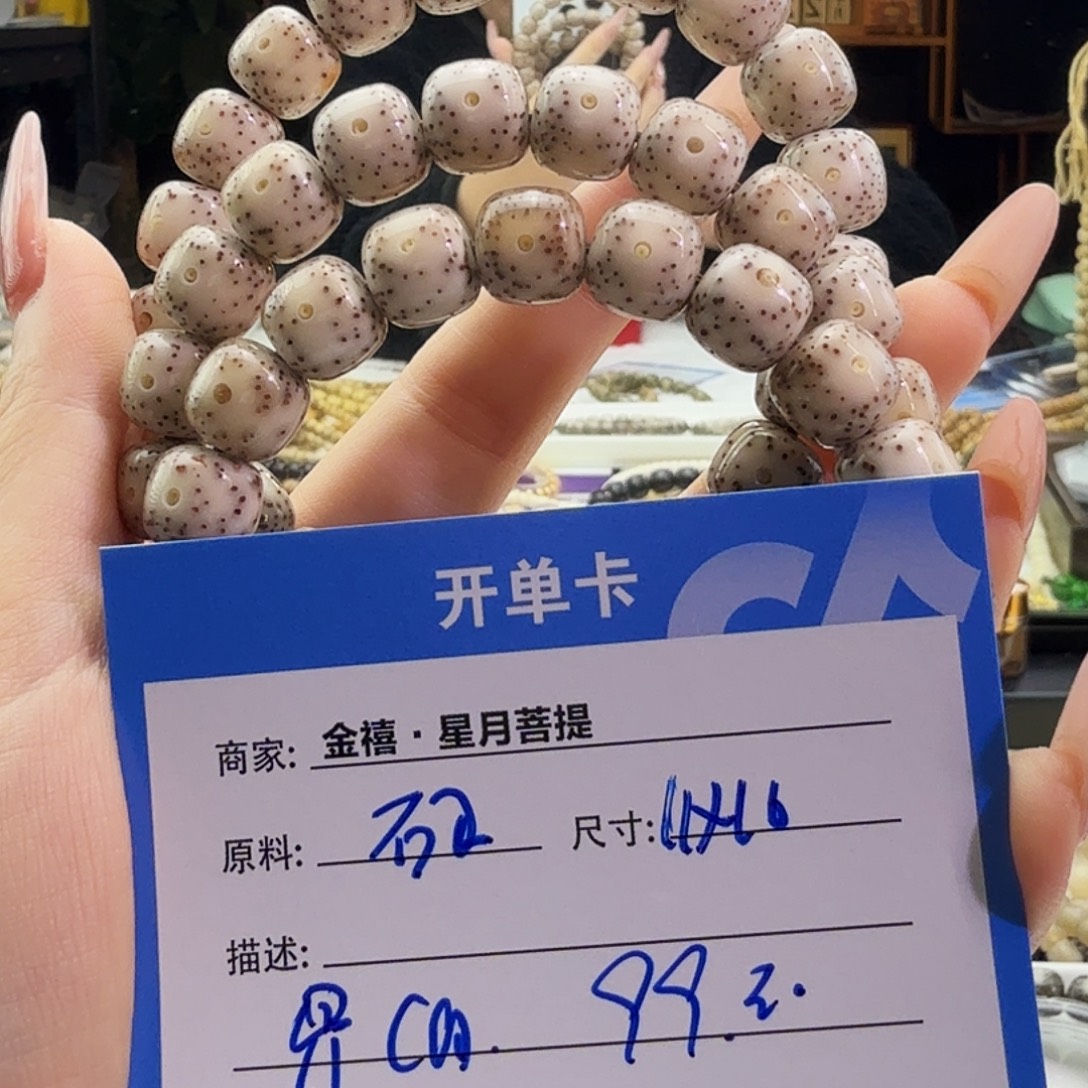 开单卡
商家: 金禧·星月菩提
原料: 尺寸: 11X16
描述:
99.